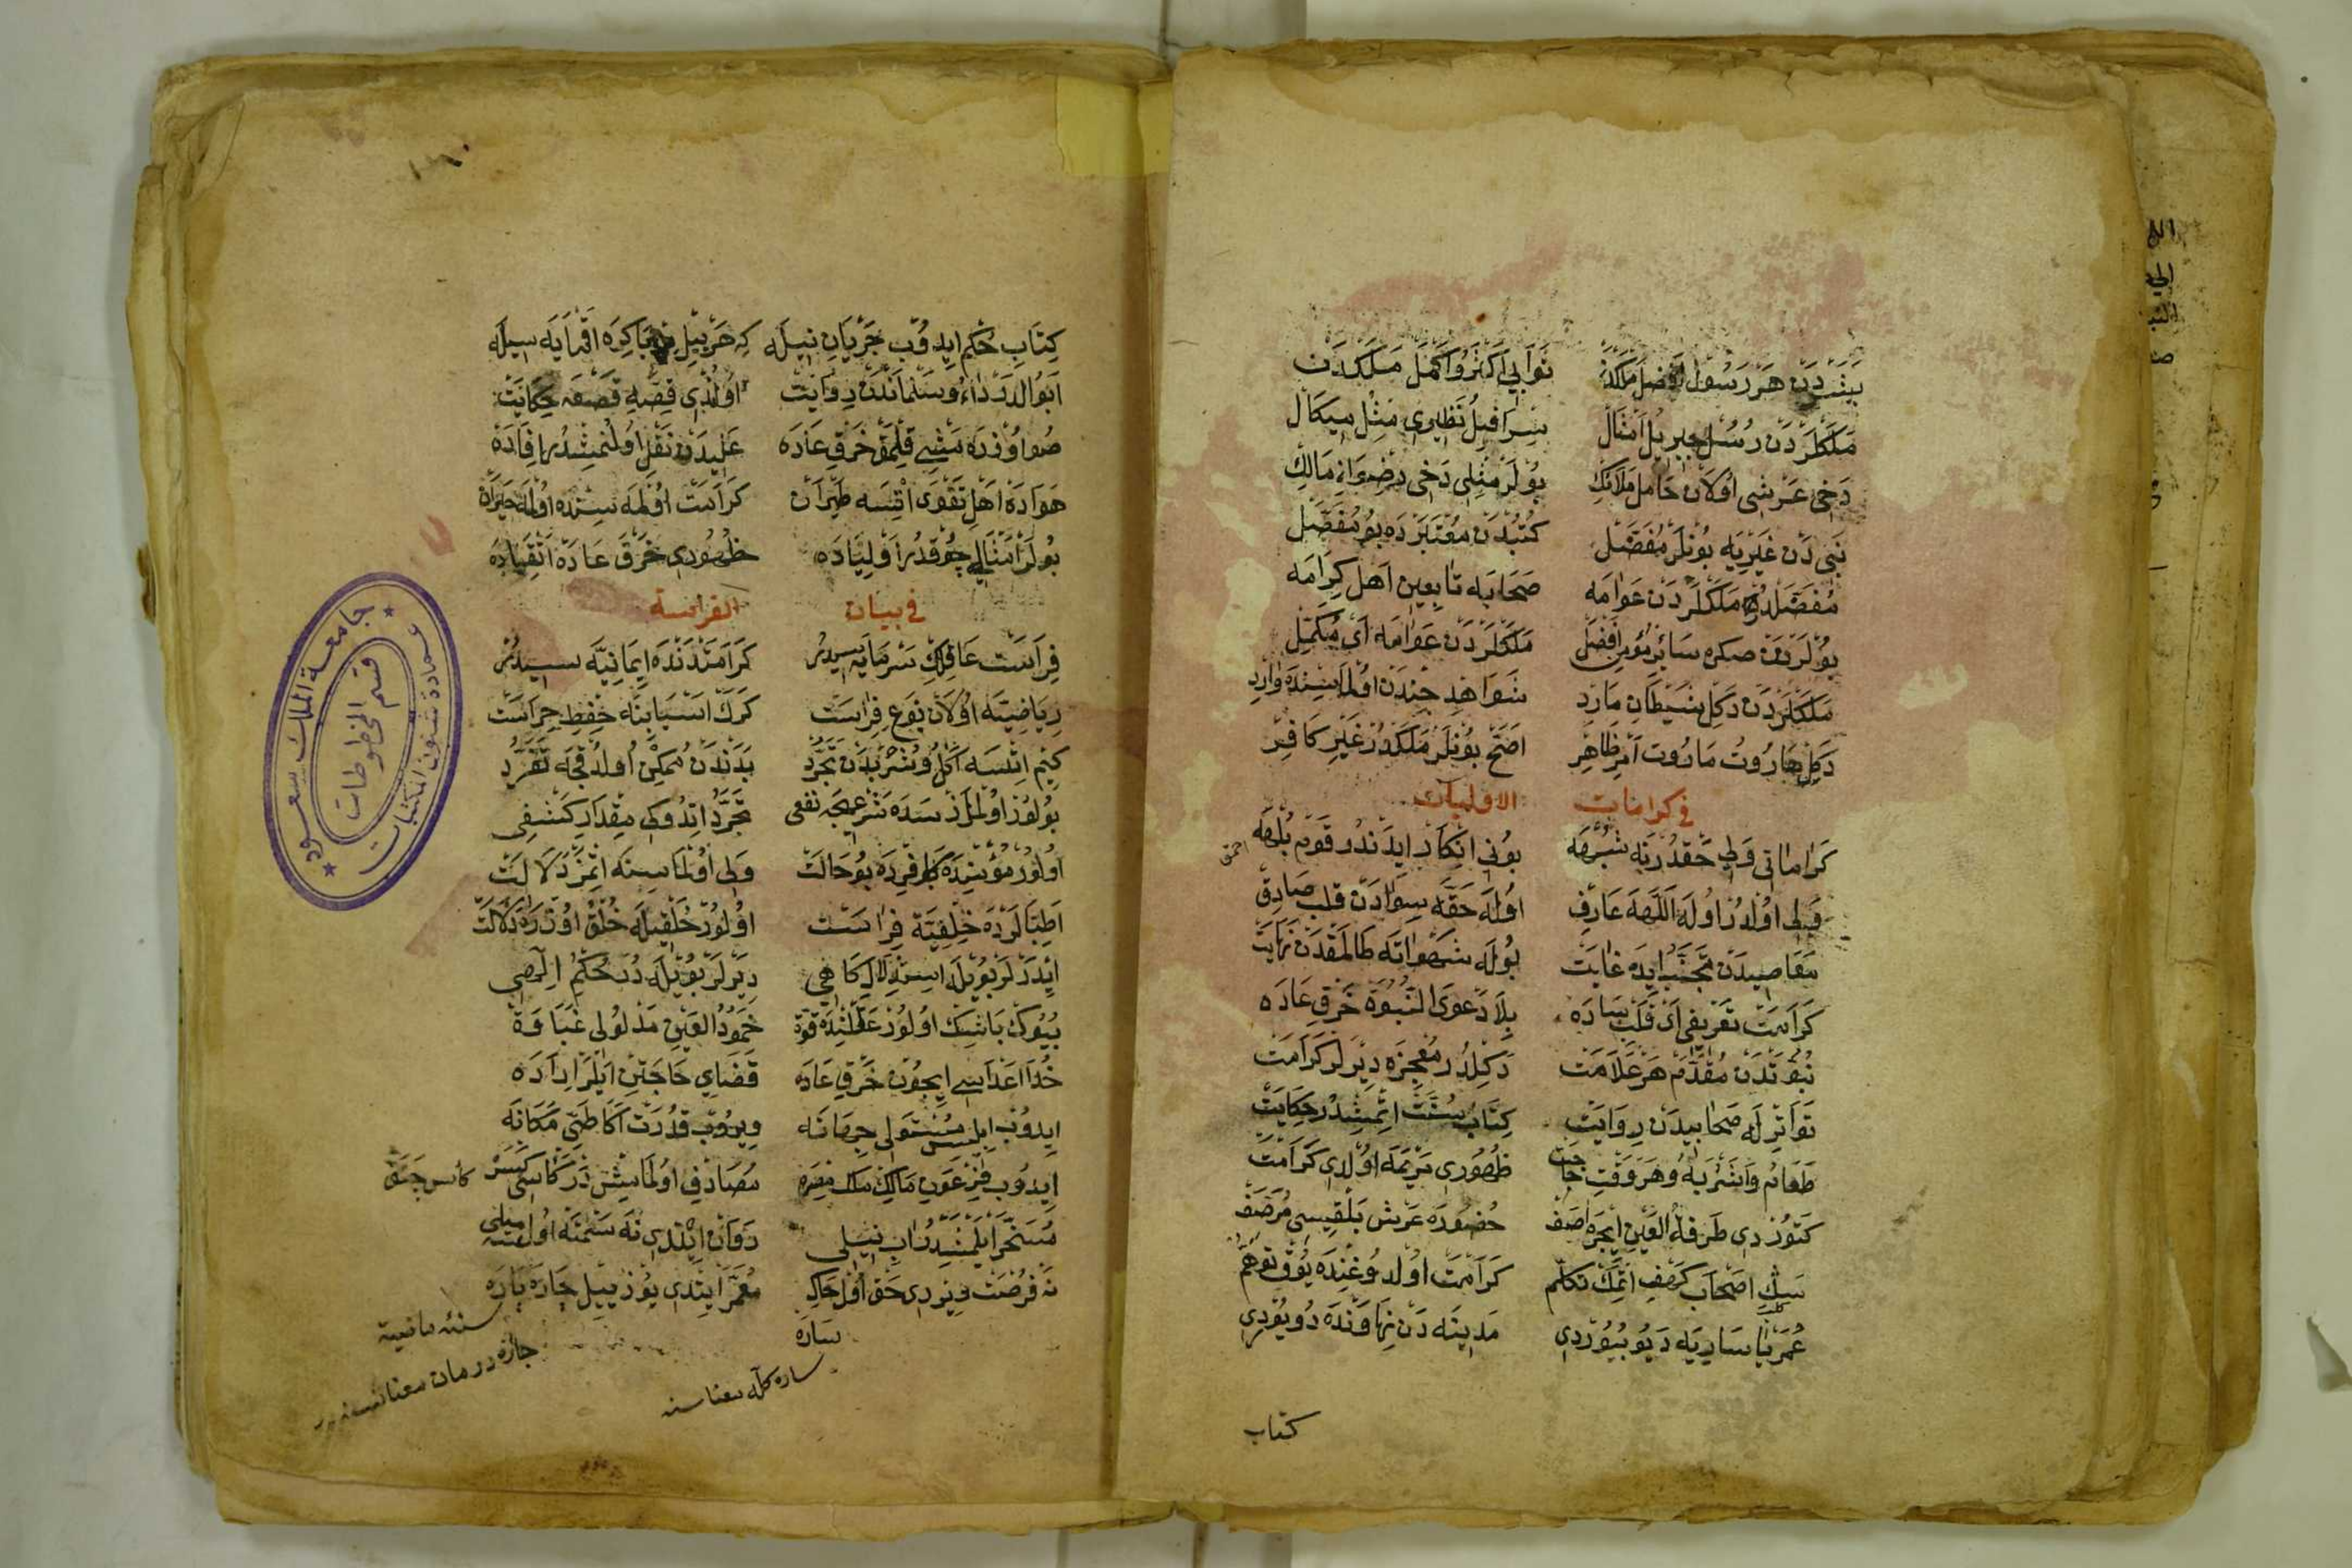 بشردن هر رسول افضل ملکدن ثوابی اکثر و اکمل ملکدن
ملکلردن رسل جبریل امثال سرافیل نظیری مثل میکال
دخی عرشی اولان حامل ملائک بولر مثلی دخی رضوان مالک
نبی دن غیریه بونلر مفضل کتبدن معتبرده بو مفصل
مفضلدر ملکلردن عوامه صحابه تابعین اهل کرامه
بولردن صکره سائر مؤمن افضل ملکلردن عوامه ای مکمل
ملکلردن دکل شیطان مارد شواهد جندن اولماسنده وارد
دکل هاروت ماروت امر ظاهر اصح بونلر ملکدر غیر کافر
فی کرامات الاولیاء
کراماتی ولی حقدر نه شبهه بونی انکار ایدندر قوم بلهه
احمق
ولی اولدر اوله اللهه عارف اوله حقه سوادن قلب صادق
معاصیدن تجنب ایده غایت بوله شهواته طالمقدن نهایت
کرامت تعریفی ای قلب ساده بلا دعوی النبوة خرق عاده
نبوتدن مقدم هر علامت دکلدر معجزه دیرلر کرامت
تواترله صحابیدن روایت کتاب سنت اتمشدر حکایت
طعام واشربه و هر وقت حاجت ظهوری مریمه اولدی کرامت
کتوردی طرفة العین ایچره اصف حضوره عرش بلقیسی مرصف
سک اصحاب کهف اتمک تکلم کرامت اولدوغنده یوق توهم
کلب
عمر یا ساریه دیو بیوردی مدینه دن نهاونده دویوردی
کتاب
کتاب حکم ایدوب جریان نیله که هر ییل باکره اقرایه سیله
ابو الدرداء و سلماندن روایت اولندی قصه قصعه حکایت
صو اوزره مشی قلمق خرق عاده علیدن نقل اولنمشدر افاده
هواده اهل تقوی اتسه طیران کرامت اولمه سنده اولمه حیران
بولر امثالی چوقدر اولیاده ظهوری خرق عادة اتقیاده
فی بیان الفراسة
فراست عاقلک سرمایه سیدر کرامتدنده ایمانیه سیدر
ریاضیته اولان نوع فراست کرک اسبابنه حفظ حراست
کیم اتسه اکل و شربدن تجرد بدندن ممکن اولدقجه تفرد
بولور اولمز سده شرعیجه نفعی تجرد اتدوکی مقدار کشفی
اولور مؤمنده کافرده بو حالت ولی اولماسنه اتمز دلالت
اطبالرده خلقیة فراست اولور خلقیله خلق اوزره دلالت
ایدرلر بویله استدلال کاهی دیرلر بویله در حکم الهی
بیوک باشک اولور عقلنده قوة خمود العین مدلولی غباوة
خدا اعداسی ایچون خرق عاده قضای حاجتن ایلر اراده
ایدوب ابلیس مستولی جهانه ویروب قدرت اکا طی مکانه
ایدوب فرعون مالک ملک مصره مصادف اولمامش در کاسی کسره
مسخر ایلمشدر اب نیلی روان ایتدی نه سمته اولسه میلی
نه فرصت ویردی حق اول خاکساره معمر ایتدی یوز ییل چاره یاره
ساره کله معناسنه
جامعة الملك سعود
عمادة شئون المكتبات
قسم المخطوطات